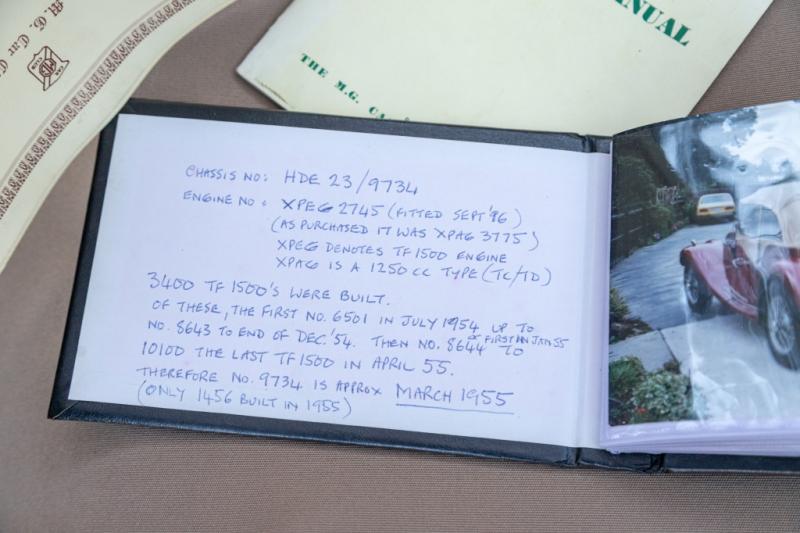 M. G. Car C
MANUAL
THE M.G. CA
CHASSIS NO: HDE 23/9734
ENGINE NO: XPEG 2745 (FITTED SEPT '96)
(AS PURCHASED IT WAS XPAG 3775)
XPEG DENOTES TF1500 ENGINE
XPAG IS A 1250 CC TYPE (TC/TD)
3400 TF 1500'S WERE BUILT.
OF THESE, THE FIRST NO. 6501 IN JULY 1954 UP TO
NO. 8643 TO END OF DEC. '54. THEN NO. 8644 FIRST IN JAN 55 TO
10100 THE LAST TF1500 IN APRIL 55.
THEREFORE NO. 9734 IS APPROX MARCH 1955
(ONLY 1456 BUILT IN 1955)